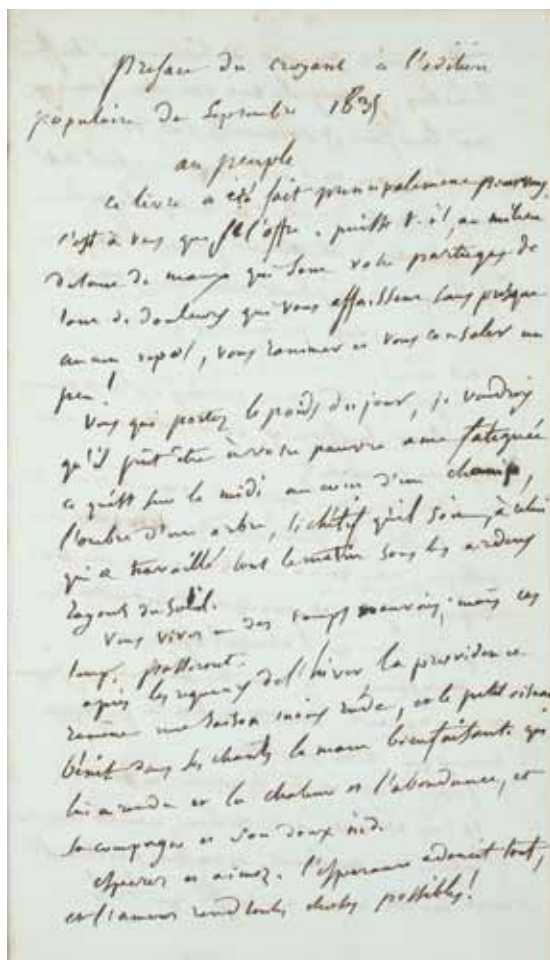 Preface du croyant à l'édition
populaire de Septembre 1835
au peuple
Ce livre a été fait principalement pour vous,
c'est à vous que je l'offre. puisse-t-il, au milieu
de tant de maux qui sont votre partage, de
tant de douleurs qui vous affaissent sans presque
aucun repos, vous ranimer et vous consoler un
peu!
Vous qui portez le poids du jour, je voudrois
qu'il pût être à votre pauvre ame fatiguée
ce qu'est sur le midi au coin d'un champ,
l'ombre d'un arbre, si chétif qu'il soit, à celui
qui a travaillé tout le matin sous les ardens
rayons du soleil.
Vous vivez en des temps mauvais; mais ces
temps passeront.
après les rigueurs de l'hiver la providence
ramène une saison moins rude, et le petit oiseau
bénit dans ses chants la main bienfaisante qui
lui a rendu et la chaleur et l'abondance, et
sa compagne et son doux nid.
esperez et aimez. l'esperance adoucit tout,
et l'amour rend toutes choses possibles!